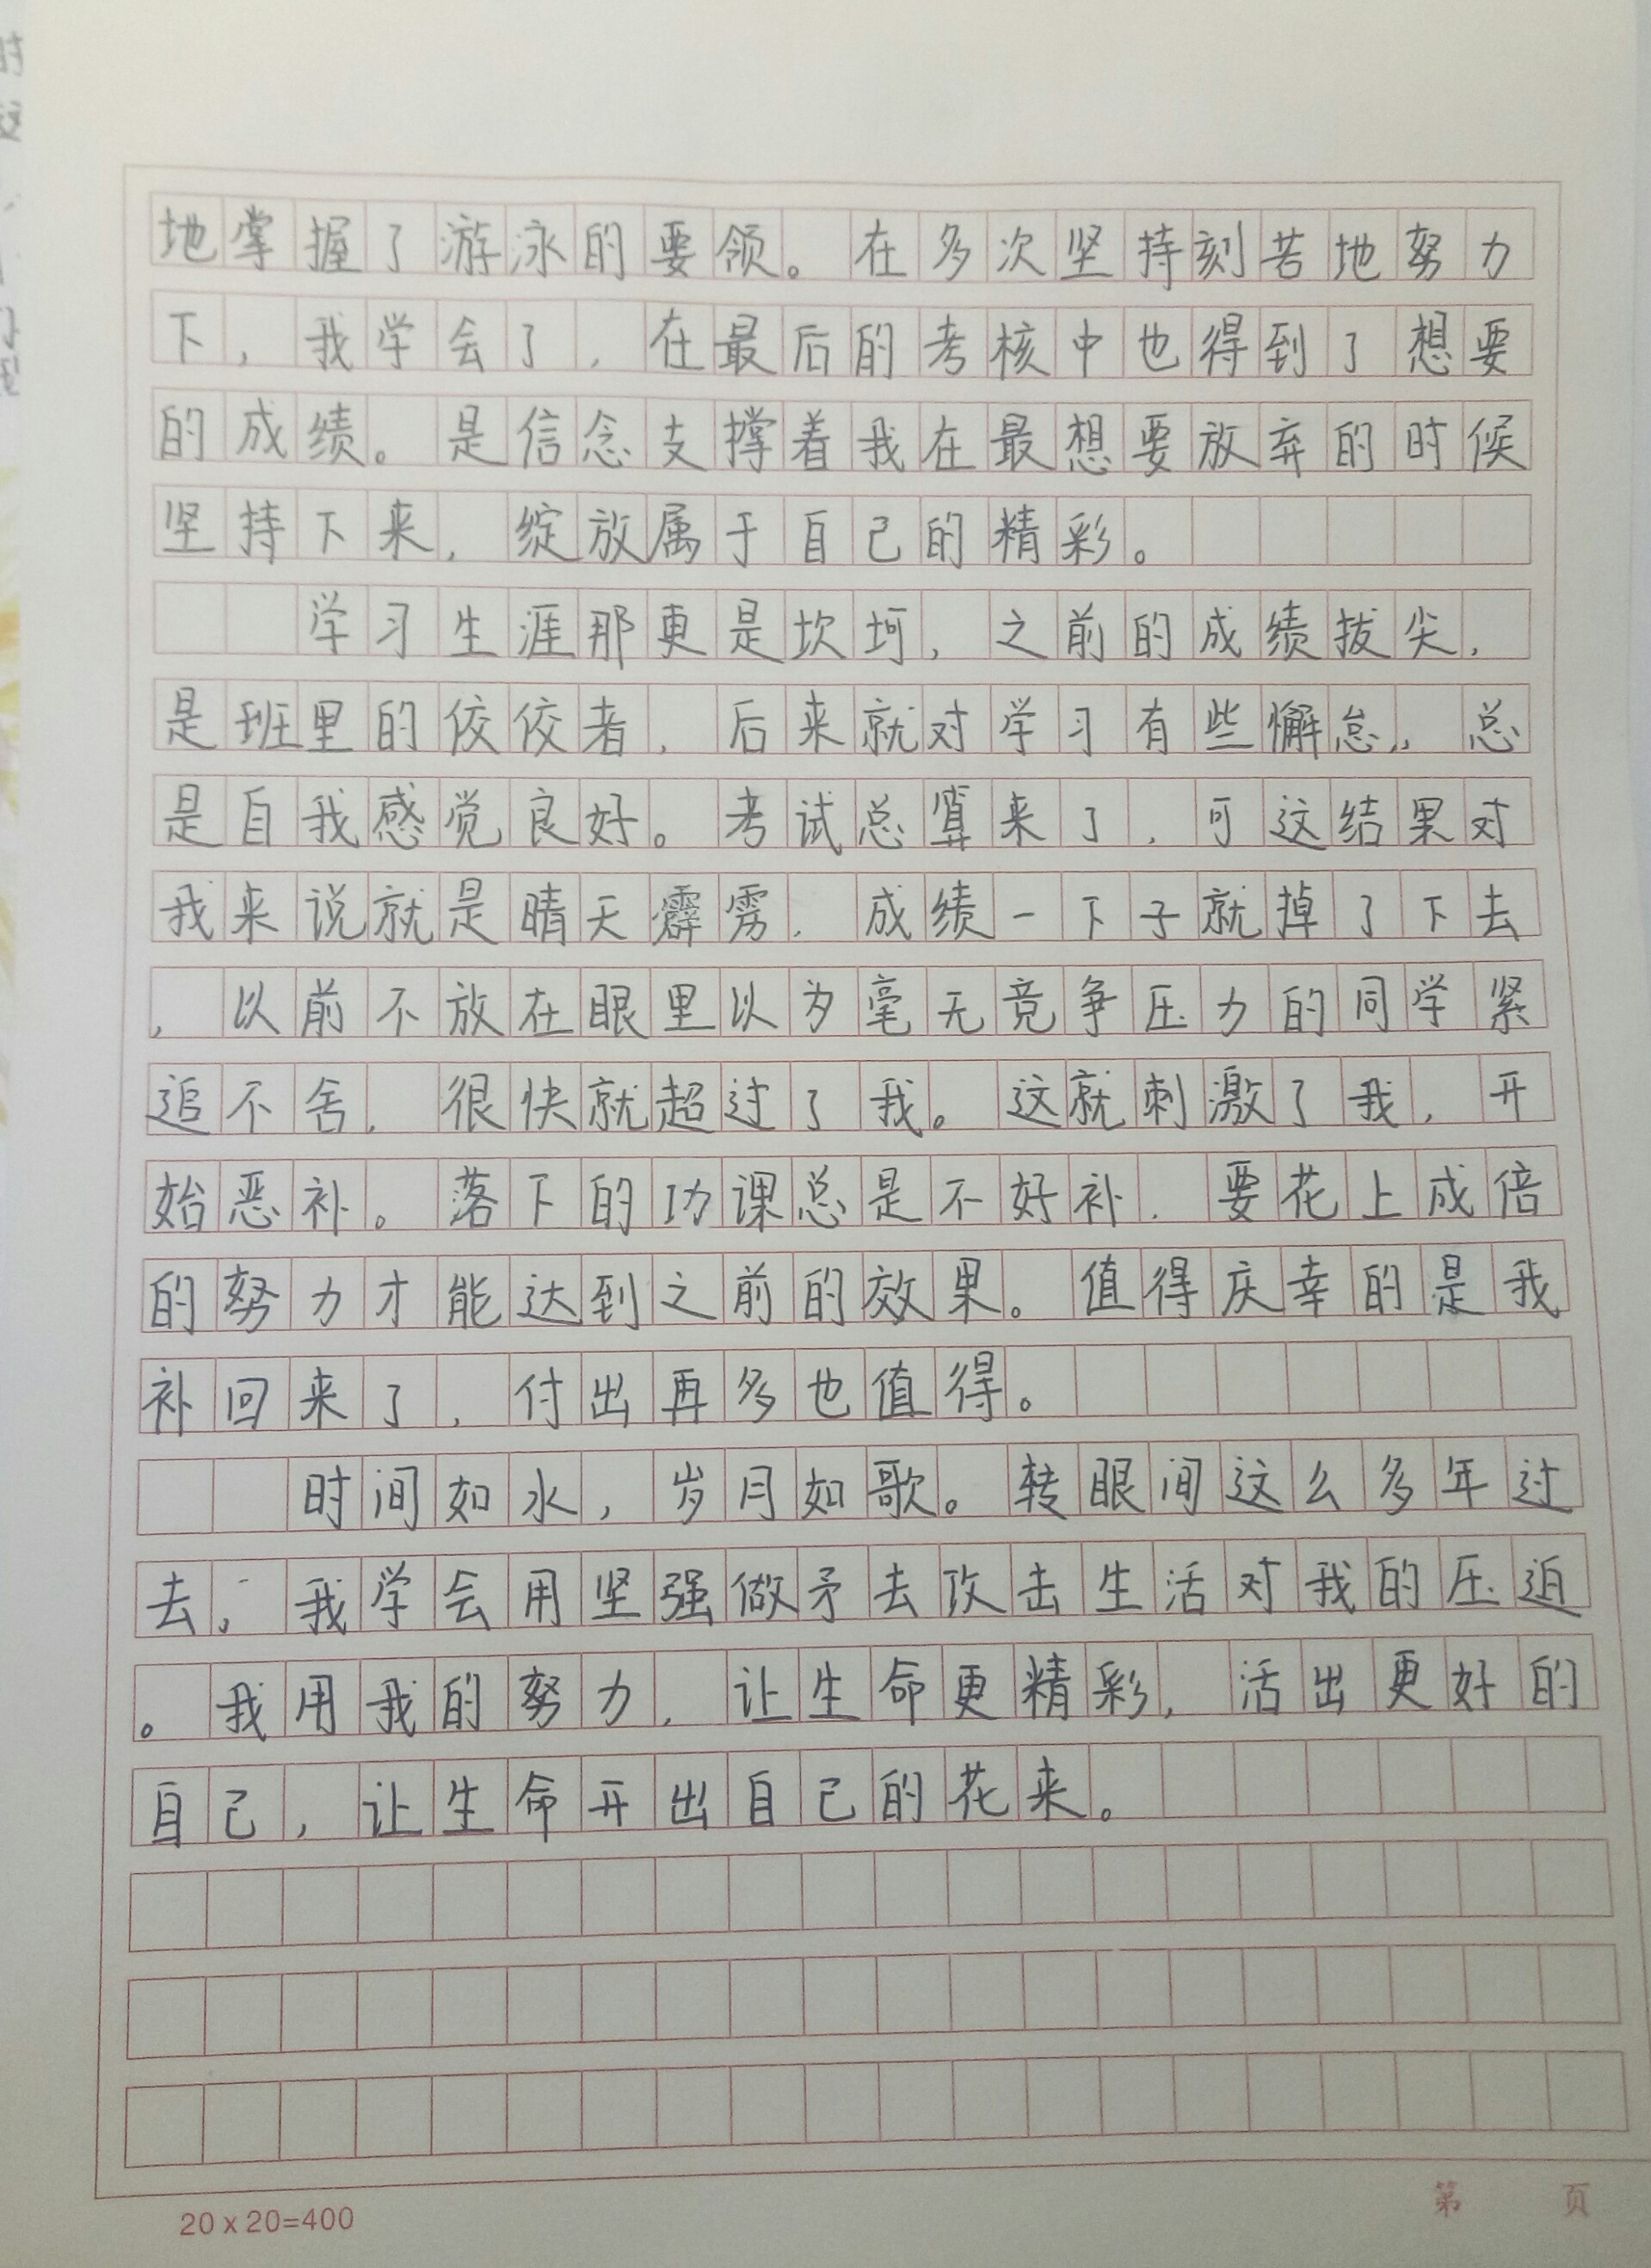 地掌握了游泳的要领。在多次坚持刻苦地努力
下，我学会了，在最后的考核中也得到了想要
的成绩。是信念支撑着我在最想要放弃的时候
坚持下来，绽放属于自己的精彩。
学习生涯那更是坎坷，之前的成绩拔尖，
是班里的佼佼者，后来就对学习有些懈怠，总
是自我感觉良好。考试总算来了，可这结果对
我来说就是晴天霹雳，成绩一下子就掉了下去
，以前不放在眼里以为毫无竞争压力的同学紧
追不舍，很快就超过了我。这就刺激了我，开
始恶补。落下的功课总是不好补，要花上成倍
的努力才能达到之前的效果。值得庆幸的是我
补回来了，付出再多也值得。
时间如水，岁月如歌。转眼间这么多年过
去，我学会用坚强做矛去攻击生活对我的压迫
。我用我的努力，让生命更精彩，活出更好的
自己，让生命开出自己的花来。
20x20=400
第 页